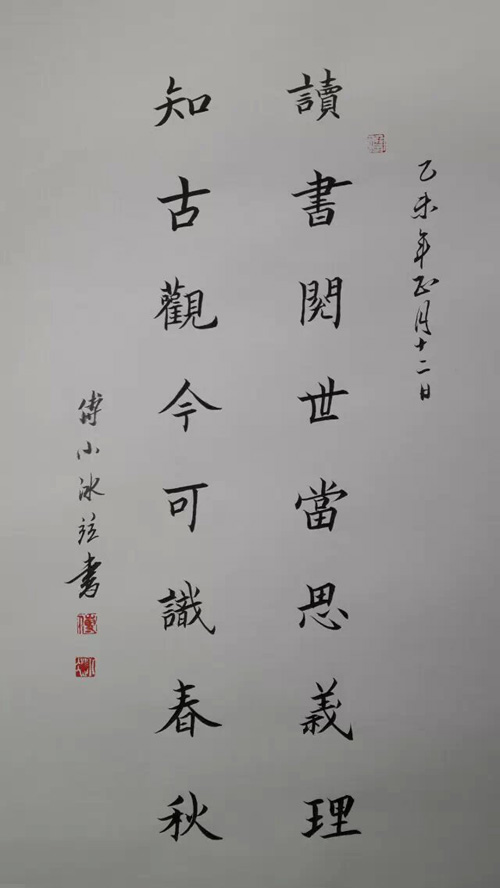 乙未年正月十二日
讀書閱世當思義理
知古觀今可識春秋
傅小冰书